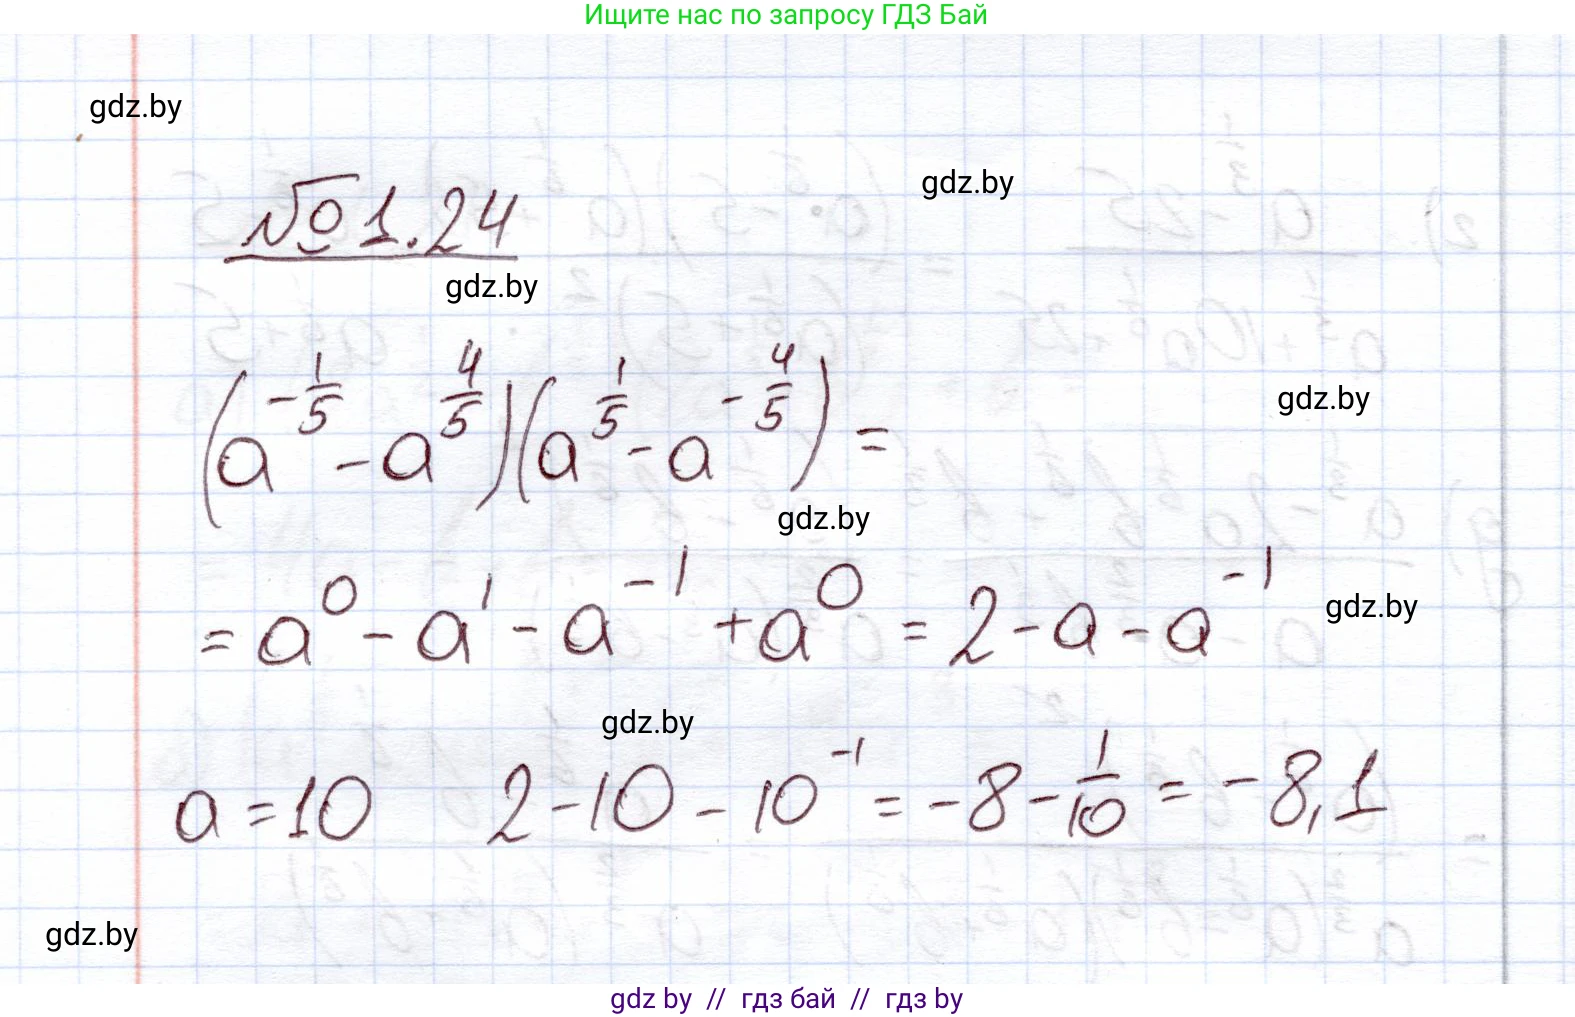 Ищите нас по запросу ГДЗ Бай
gdz.by
gdz.by
№ 1.24
gdz.by
(a^{-1/5} - a^{4/5})(a^{1/5} - a^{-4/5}) =
gdz.by
gdz.by
= a^0 - a^1 - a^{-1} + a^0 = 2 - a - a^{-1}
gdz.by
gdz.by
a = 10 2 - 10 - 10^{-1} = -8 - 1/10 = -8,1
gdz.by
gdz by // гдз бай // гдз by